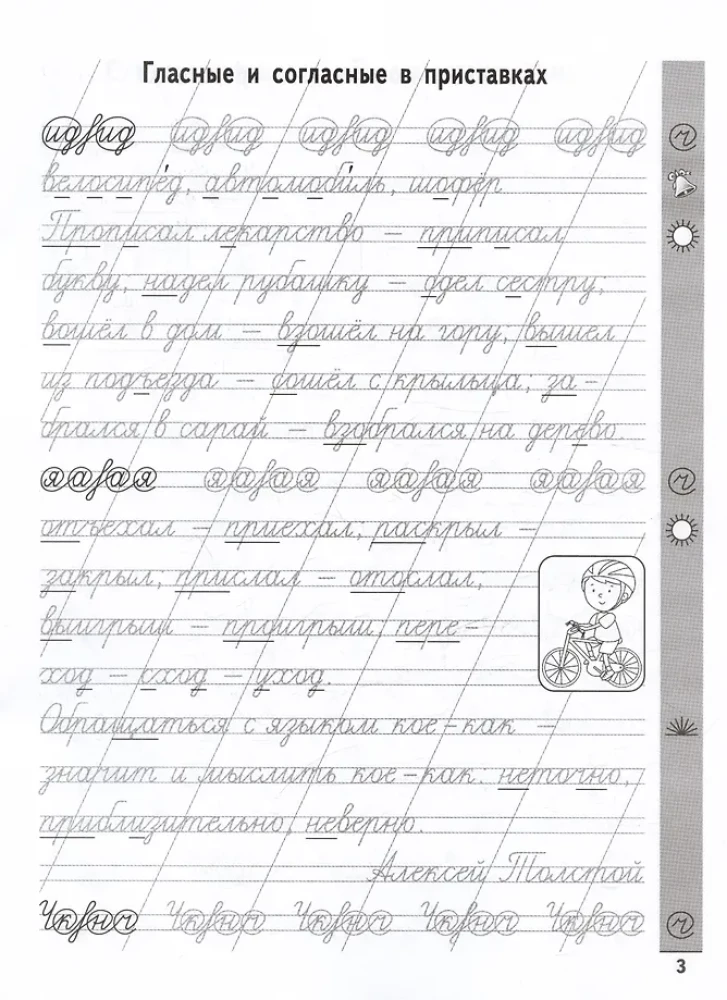 Гласные и согласные в приставках
идвид идвид идвид идвид идвид
велосипе́д, автомоби́ль, шофёр.
Прописал лекарство – приписал
букву; надел рубашку – одел сестру;
вошёл в дом – взошёл на гору; вышел
из подъезда – дошёл с крыльца; за-
брался в сарай – взобрался на дерево.
яавая яавая яавая яавая
отъехал – приехал; раскрыл –
закрыл; прислал – отослал;
выигрыш – проигрыш; пере-
ход – сход – уход.
Обращаться с языком кое-как –
значит и мыслить кое-как: неточно,
приблизительно, неверно.
Алексей Толстой
Чквнч Чквнч Чквнч Чквнч Чквнч
3